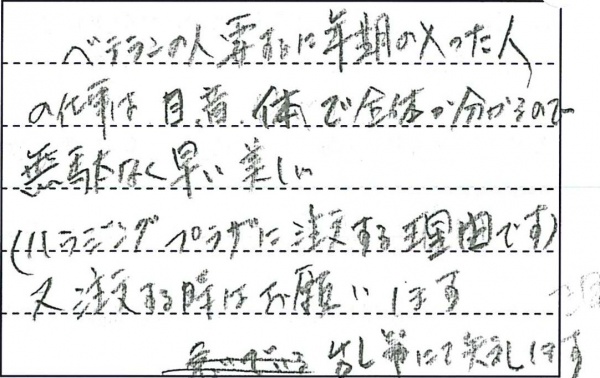 ベテランの人要するに年期の入った人
の仕事は目、音、体で全体が分かるので
無駄なく早い美しい
(ハラジングプラザに注文する理由です)
又注文する時はお願いします
なし筆にて失礼します